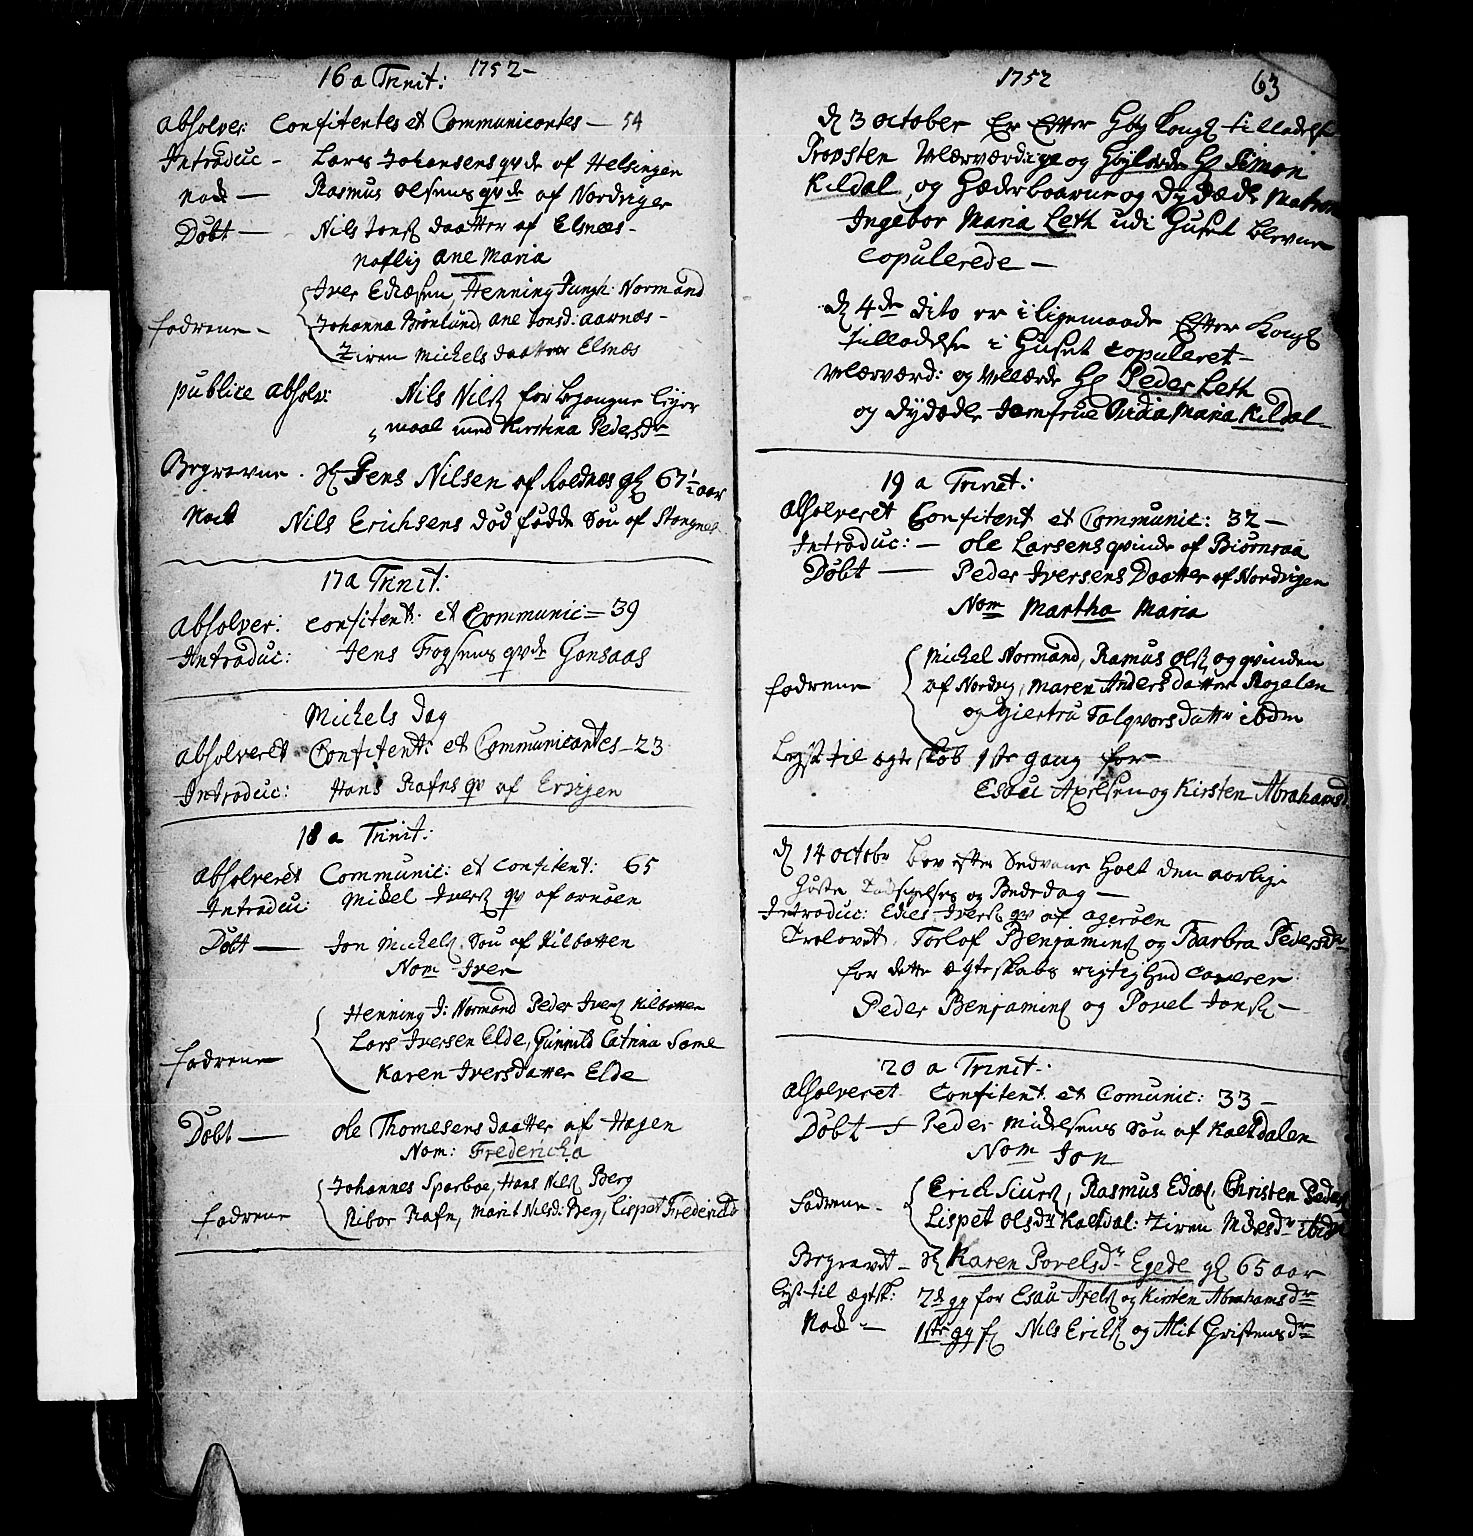 1752-
16 a Trinit:
Absolver: Confitentes et Communicantes — 54
Introduc - Lars Johansens qvde af Helsingen
Nock — Rasmus Olsens qvde af Nordvigen
Døbt — Nils Jons daatter af Elsnæs -
naflig Ane Maria
Iver Henning Jungh: Normand
fadrene - Johanna Brønlund, Ane Jonsd: Aarnæs -
Ziren Michels daatter Elsnæs
publice absolv: Nils Nils for
maal med Kirstina Pedersdr
Begravne. Jens Nilsen af gl 67½ aar
Nock Nils Erichsens død fødde Søn af Stangnes
17 a Trinit:
Absolver: Confitent: et Communic: — 39
Introduc: Jens qvde Gonsaas
Michels dag
Absolveret Confitent: et Communicantes — 23
Introduc: Hans Rafns qv af
18 a Trinit:
Absolveret Communic: et Confitent: 65
Introduc: Michel Ivers qv af
Døbt — Jon Michels Søn af Kilbotten
Nom Iver
Henning J: Normand Peder Ivers Kilbotten
Lars Iversen Elde, Gunnild Catrina Same
fadrene Karen Iversdatter Elde
Døbt — Ole Thomesens daatter af Hagen
Nom: Fredericha
Johannes Sparboe, Hans Nils Berg
fadrene Ribor Rafn, Marit Nilsd: Berg, Lispet Frederichs
1752 63
d 3 october er efter Kongl tilladelse
Provsten Velærværdige og Høylærde Hr Simon
Kildal og Hæderbaarne og Dydædle Matrone
Ingebor Maria Leth udi Huset blevne
Copulerede —
d 4de dito er i ligemaade efter Kongl
tilladelse i Huset copuleret —
Velærværd: og Vellærde Hr Peder Leth
og Dydædle Jomfrue Maria Kildal -
19 a Trinit:
Absolveret Confitent et Communic: 32 —
Introduc: — Ole Larsens qvinde af Biørnraa
Døbt — Peder Iversens Daatter af Nordvigen
Nom Martha Maria
Michel Normand, Rasmus Ols og qvinden
fadrene af Nordvig, Maren Anders datter
og Giertru datter ibdm
Lyst til ægteskab 1ste gang for
Esau Axelsen og Kirsten Abrahamsd
d 14 octobr blev efter Sædvane Holt den aarlige
Høste Taksigelses og Bededag —
Introduc: Ivers qv af Agerøen
Trolovet Torlof Benjamins og Barbra Pedersdr
for dette ægteskabs rigtighed caverer
Peder Benjamins og Povel Jons —
20 a Trinit:
Absolveret Confitent et Comunic: 33 —
Døbt — Peder Michelsens Søn af Kaeldalen
Nom Jon
Erich Rasmus Christen Peders
fadrene - Lispet Olsdr Ziren ibid
Begravet — Karen Povelsdr Egede gl 65 aar
lyst til ægtsk: 2d gg for Esau Axels og Kirsten Abrahamsdr
Nock — 1ste gg f Nils Erichs og Alit Christensdr